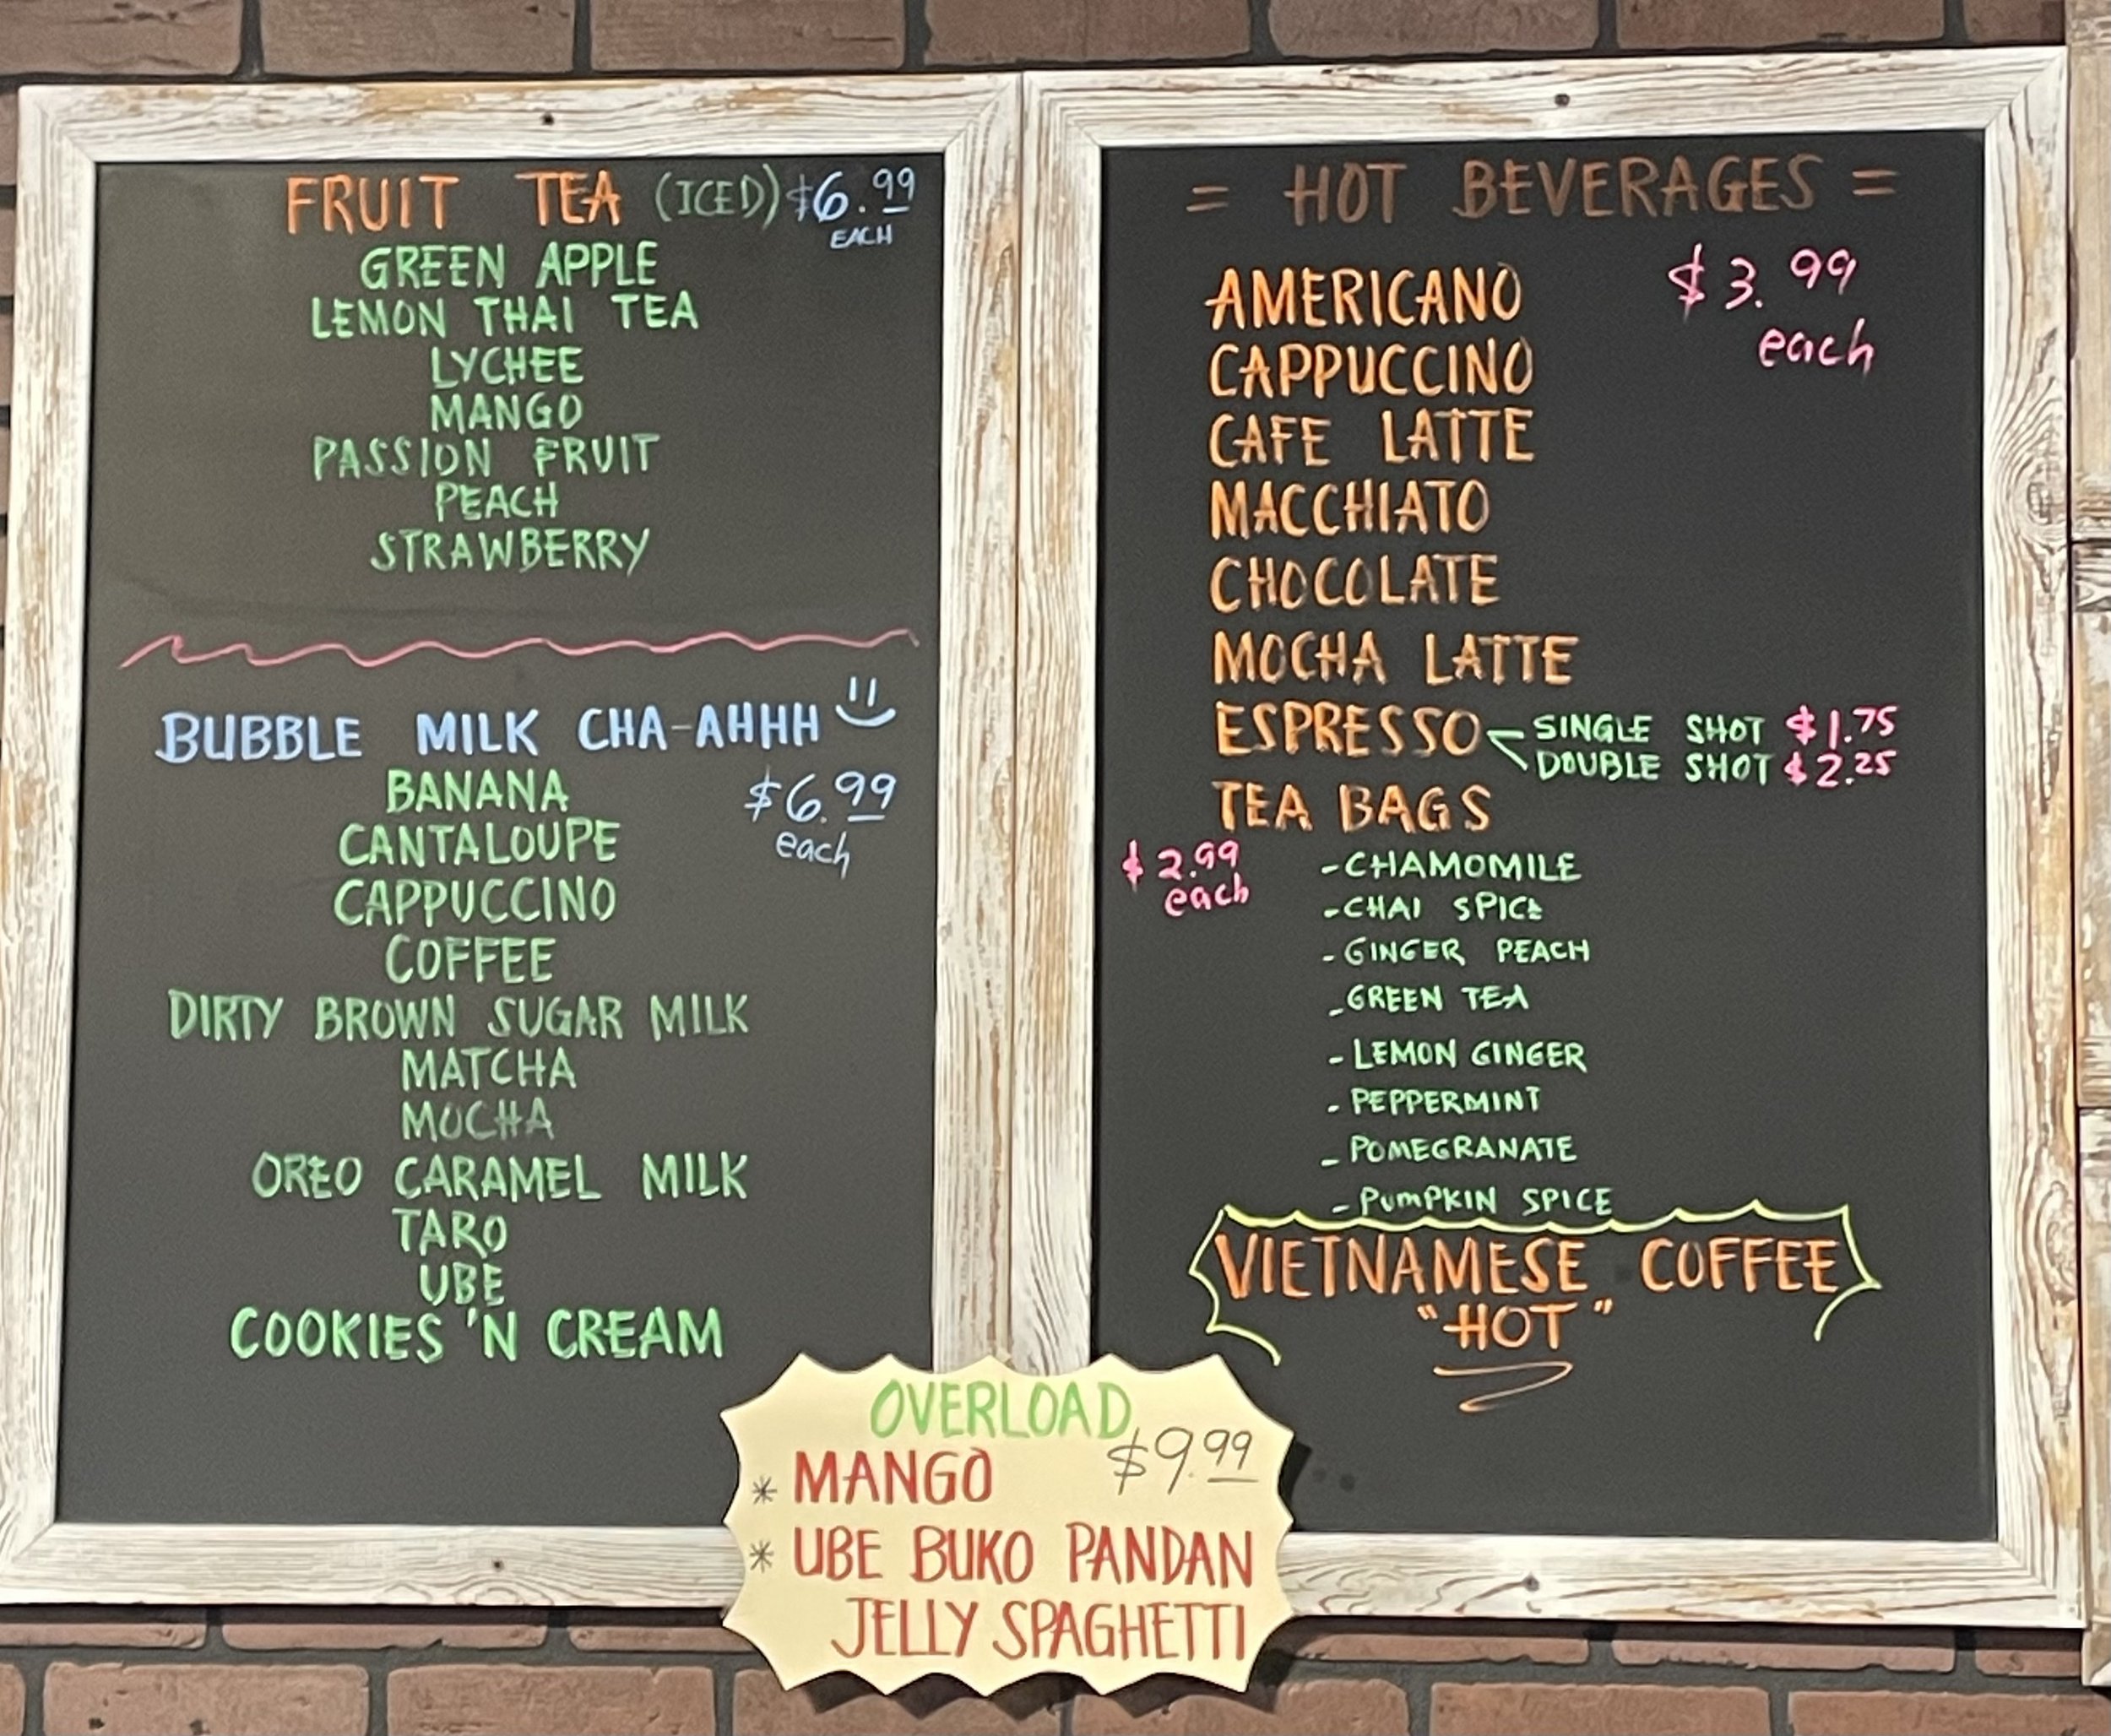 FRUIT TEA (ICED) $6.99
EACH
GREEN APPLE
LEMON THAI TEA
LYCHEE
MANGO
PASSION FRUIT
PEACH
STRAWBERRY
BUBBLE MILK CHA-AHHH
BANANA
$6.99
each
CANTALOUPE
CAPPUCCINO
COFFEE
DIRTY BROWN SUGAR MILK
MATCHA
MOCHA
OREO CARAMEL MILK
TARO
UBE
COOKIES 'N CREAM
= HOT BEVERAGES =
$3.99
each
AMERICANO
CAPPUCCINO
CAFE LATTE
MACCHIATO
CHOCOLATE
MOCHA LATTE
ESPRESSO
SINGLE SHOT $1.75
DOUBLE SHOT $2.25
TEA BAGS
$2.99
each
-CHAMOMILE
-CHAI SPICE
-GINGER PEACH
-GREEN TEA
-LEMON GINGER
-PEPPERMINT
-POMEGRANATE
-PUMPKIN SPICE
VIETNAMESE COFFEE
"HOT"
OVERLOAD
* MANGO $9.99
* UBE BUKO PANDAN
JELLY SPAGHETTI